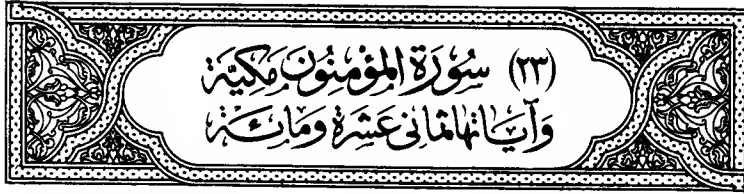 (٢٣) سُورَةُ المُؤْمِنُونَ مَكِّيَّة
وَآيَاتُهَا ثَمَانِي عَشْرَةَ وَمَائَة